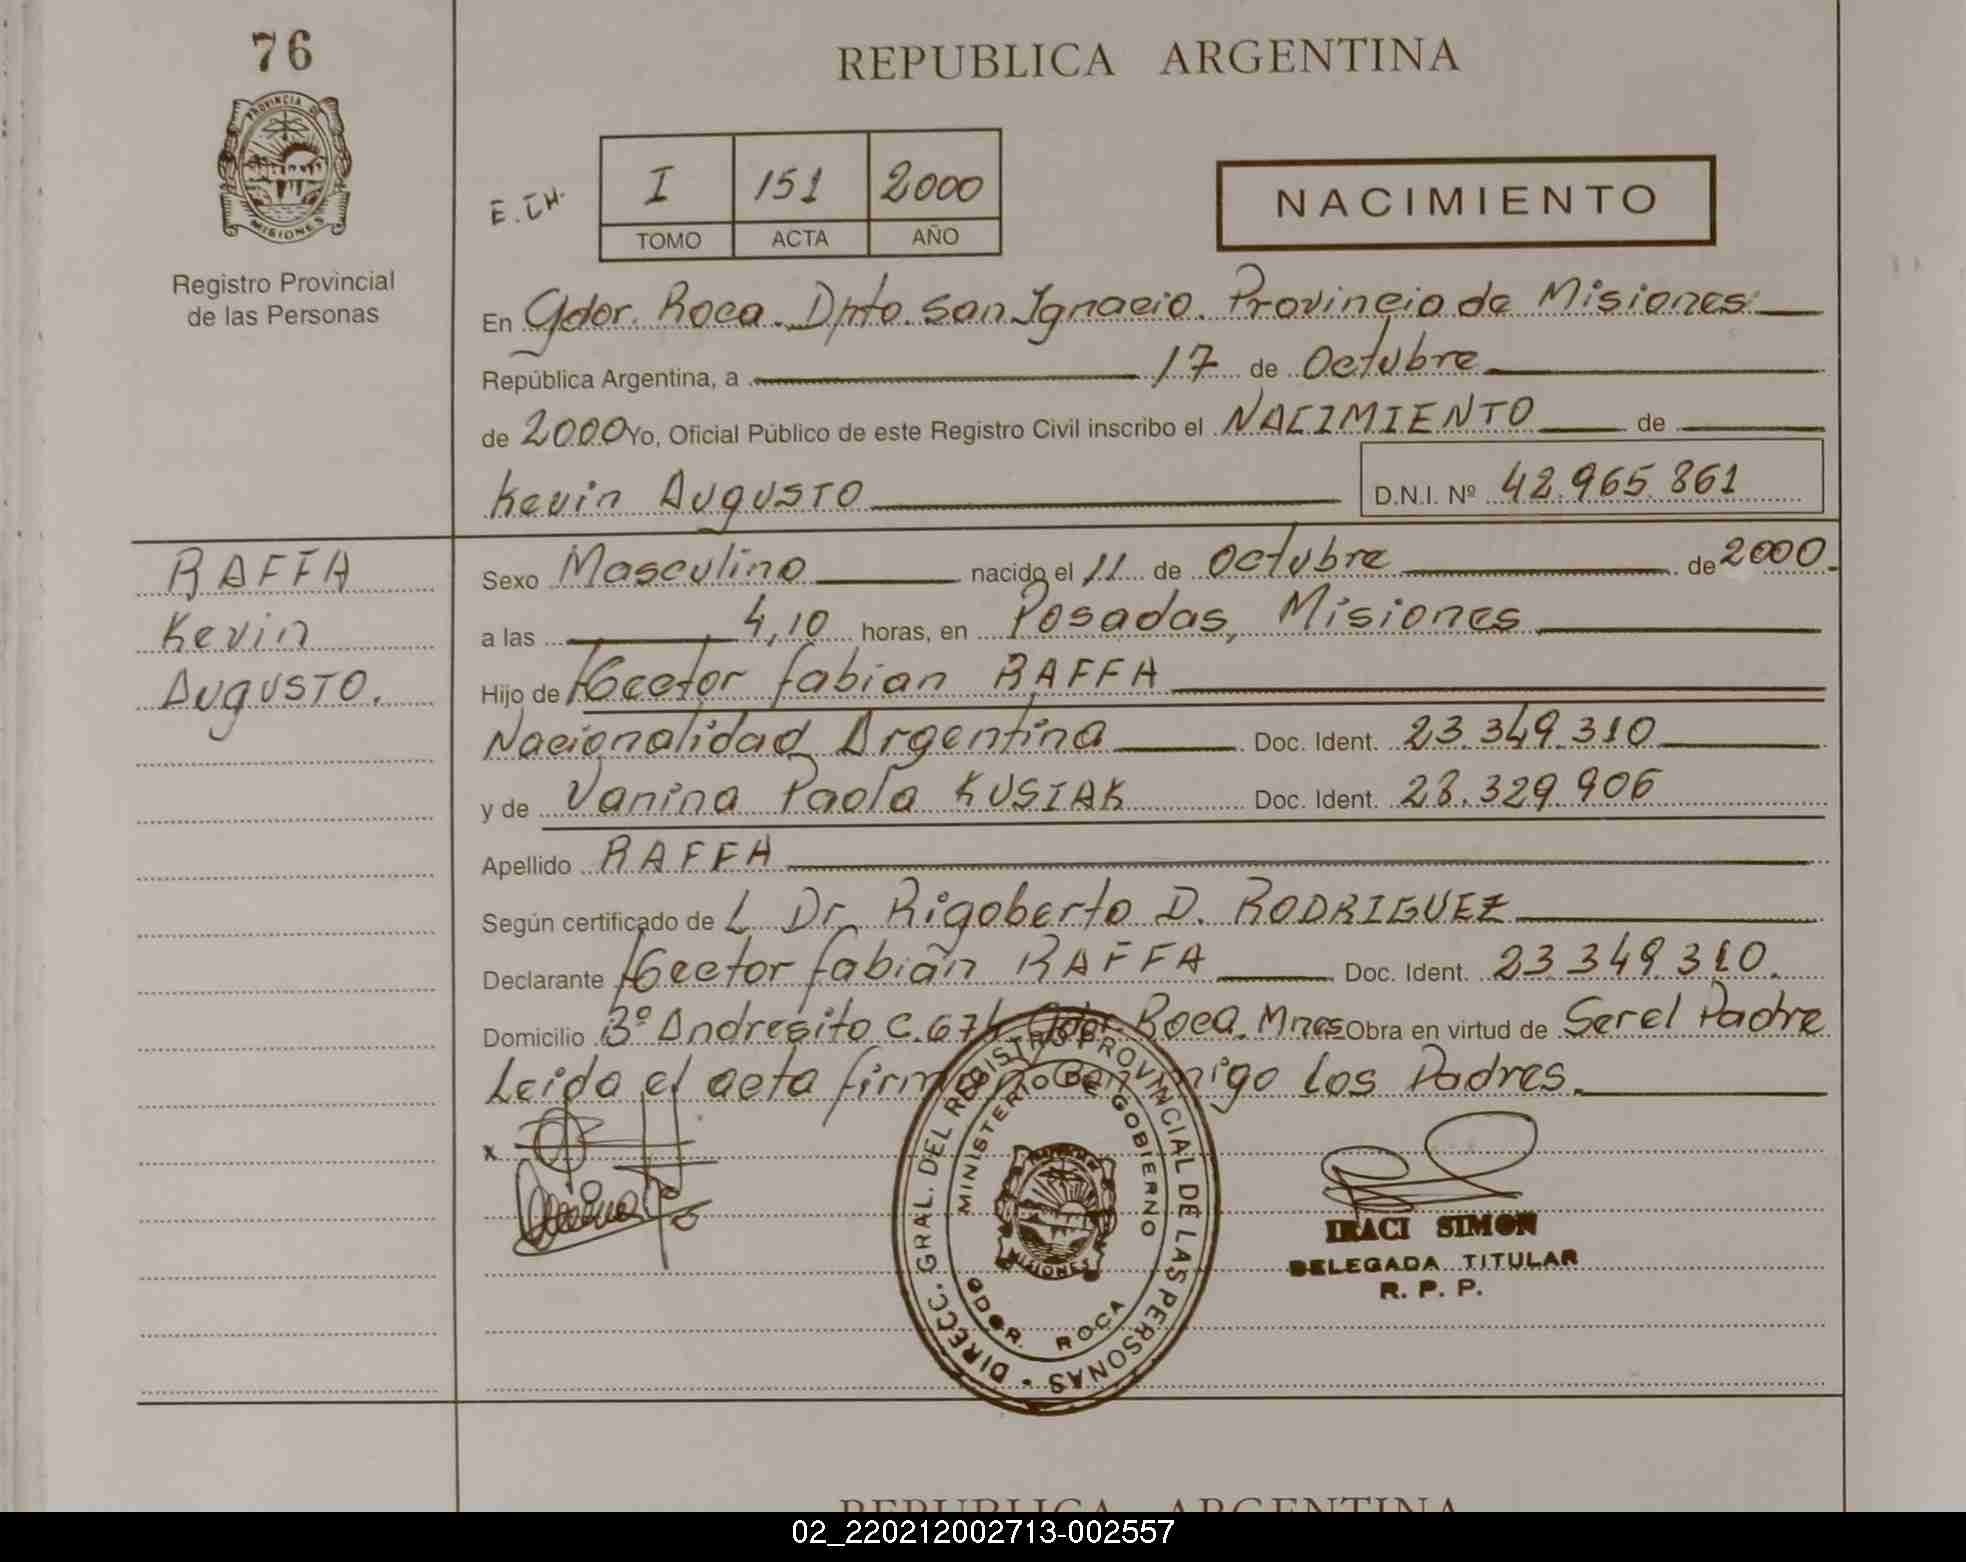 76
REPUBLICA ARGENTINA
PROVINCIA DE
MISIONES
Registro Provincial
de las Personas
I 151 2000
TOMO ACTA AÑO
NACIMIENTO
En Gdor. Roca. Dpto. San Ignacio. Provincia de Misiones
República Argentina, a 17 de Octubre
de 2000 Yo, Oficial Público de este Registro Civil inscribo el NACIMIENTO de
Kevin Augusto D.N.I. Nº 42.965.861
RAFFA
Kevin
Augusto.
Sexo Masculino nacido el 11 de Octubre de 2000.
a las 4,10 horas, en Posadas, Misiones
Hijo de Hector fabian RAFFA
Nacionalidad Argentina Doc. Ident. 23.349.310
y de Vanina Paola KUSIAK Doc. Ident. 28.329.906
Apellido RAFFA
Según certificado de L Dr. Rigoberto D. RODRIGUEZ
Declarante Hector fabian RAFFA Doc. Ident. 23 349 310.
Domicilio Bº Andresito C. 674 Gdor. Roca. Mnes Obra en virtud de Ser el Padre
Leida el acta firman Conmigo los Padres.
x
DIRECC. GRAL. DEL REGISTRO PROVINCIAL DE LAS PERSONAS
MINISTERIO DE GOBIERNO
MISIONES
GDOR. ROCA
IRACI SIMON
DELEGADA TITULAR
R. P. P.
REPUBLICA ARGENTINA
02_220212002713-002557